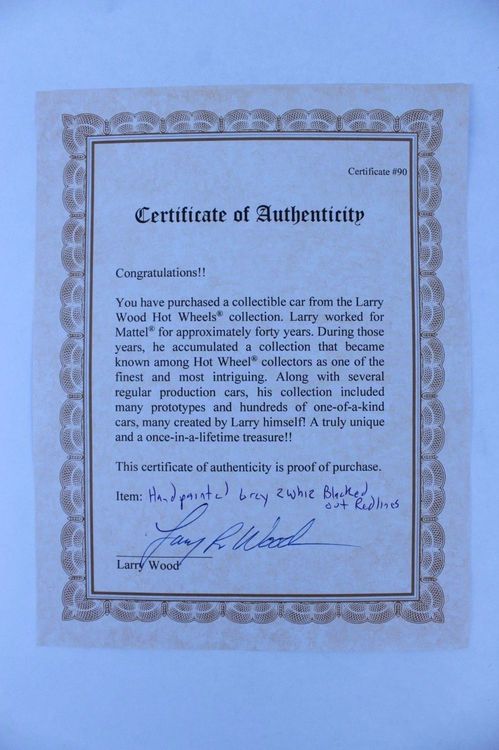 Certificate #90
Certificate of Authenticity
Congratulations!!
You have purchased a collectible car from the Larry
Wood Hot Wheels® collection. Larry worked for
Mattel® for approximately forty years. During those
years, he accumulated a collection that became
known among Hot Wheel® collectors as one of the
finest and most intriguing. Along with several
regular production cars, his collection included
many prototypes and hundreds of one-of-a-kind
cars, many created by Larry himself! A truly unique
and a once-in-a-lifetime treasure!!
This certificate of authenticity is proof of purchase.
Item: Handpainted Grey Blacked
out Redlines
Larry R Wood
Larry Wood